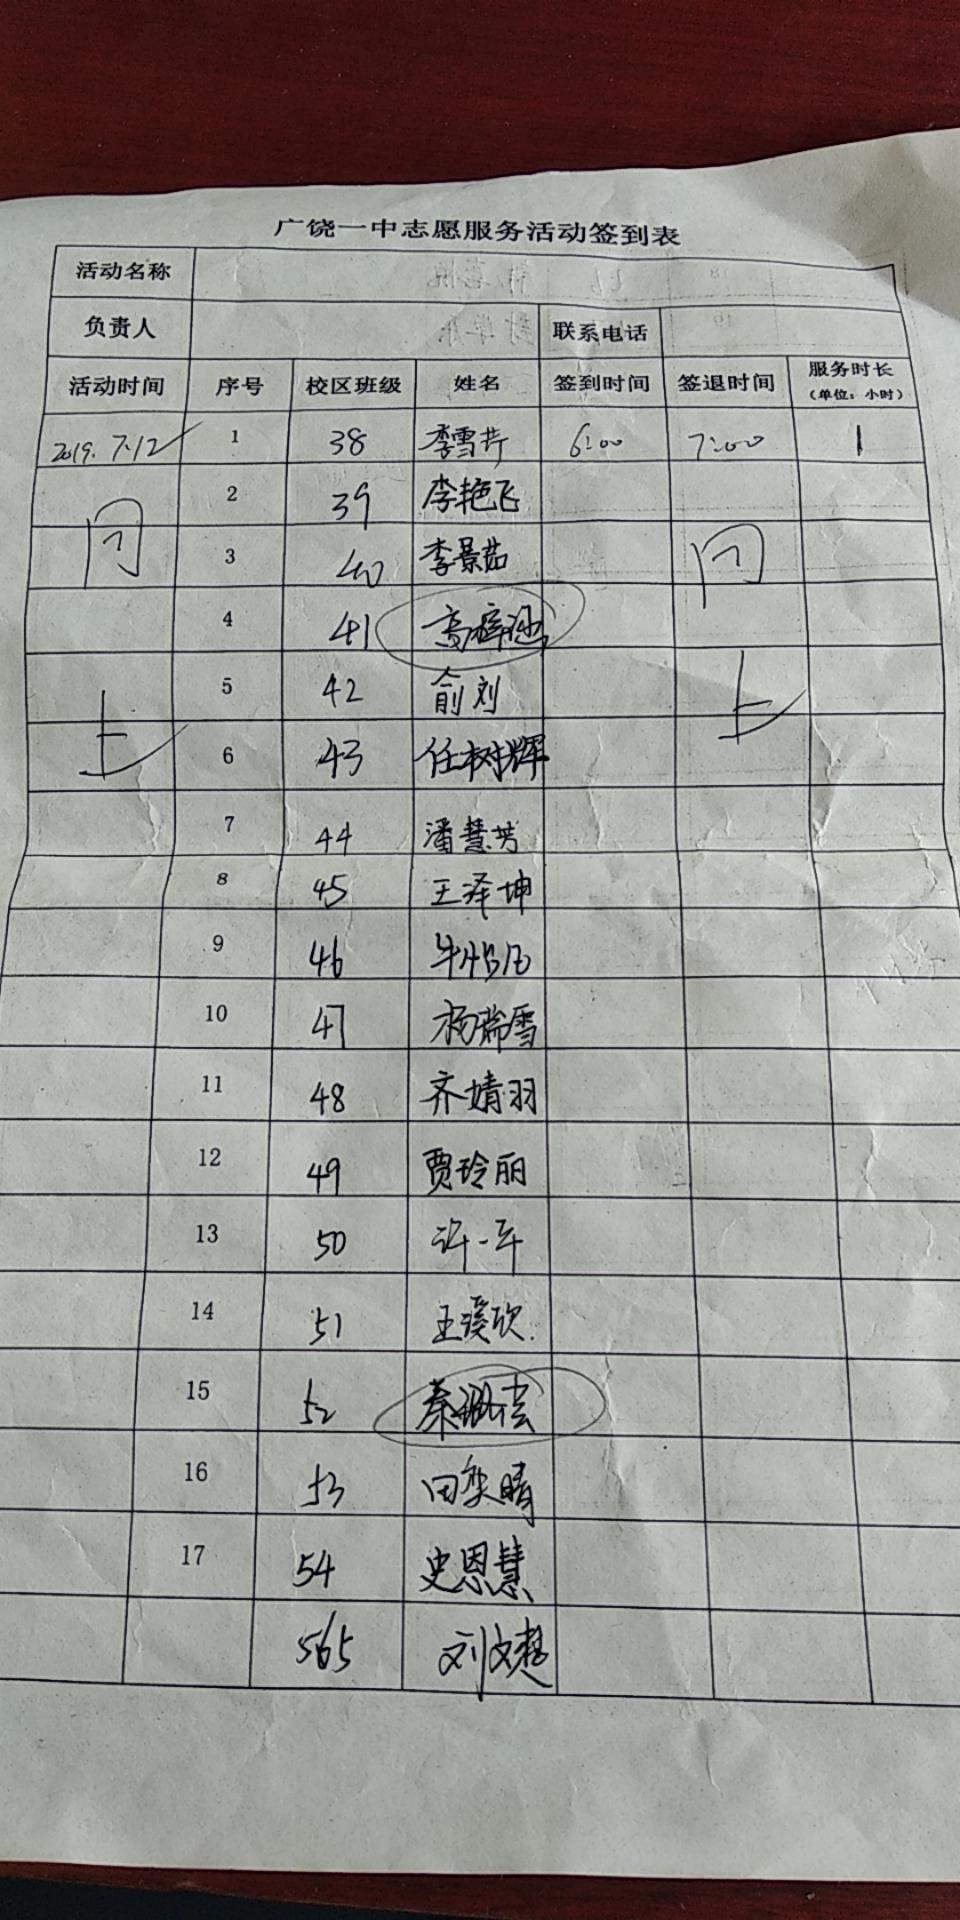 广饶一中志愿服务活动签到表
活动名称
负责人 联系电话
活动时间 序号 校区班级 姓名 签到时间 签退时间 服务时长
（单位：小时）
2019.7.12 1 38 李雪芹 6:00 7:00 1
2 39 李艳飞
同 3 40 李景茹 同
4 41 高梓涵
5 42 俞刘
上 6 43 任树辉 上
7 44 潘慧芳
8 45 王泽坤
9 46 牛
10 47 杨瑞雪
11 48 齐婧羽
12 49 贾玲丽
13 50 许一平
14 51 王溪欣
15 52 秦
16 53 田奕晴
17 54 史恩慧
565 刘文楚